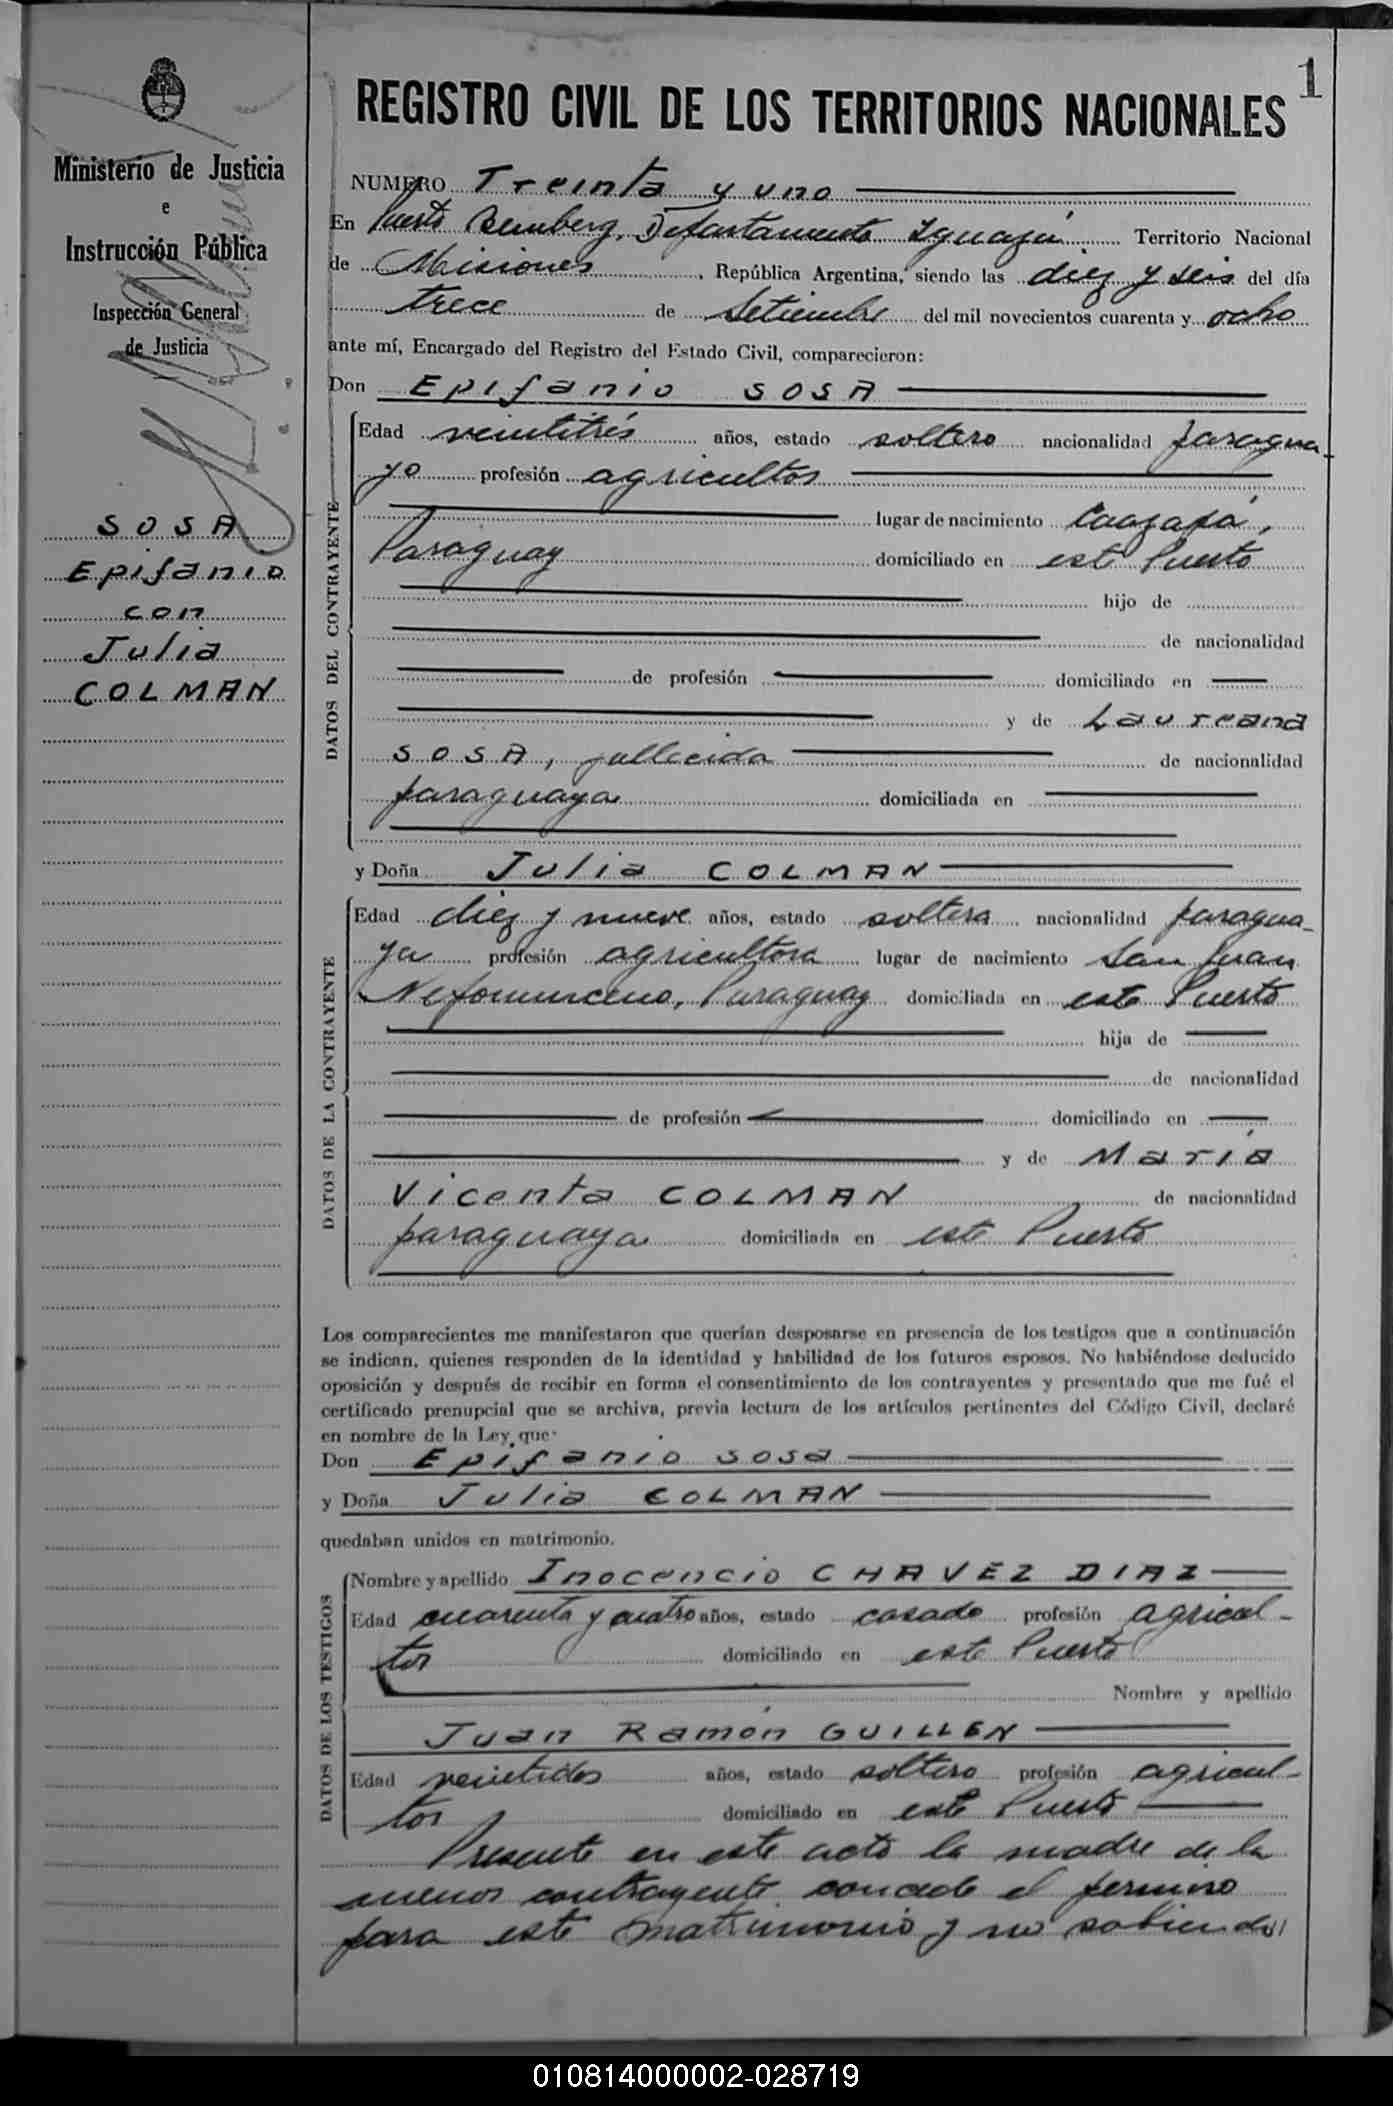 1
Ministerio de Justicia
e
Instrucción Pública
Inspección General
de Justicia
SOSA
Epifanio
con
Julia
COLMAN
REGISTRO CIVIL DE LOS TERRITORIOS NACIONALES
NUMERO Treinta y uno
En Puerto Bemberg, Departamento Iguazú Territorio Nacional
de Misiones, República Argentina, siendo las diez y seis del día
trece de Setiembre del mil novecientos cuarenta y ocho
ante mí, Encargado del Registro del Estado Civil, comparecieron:
Don Epifanio SOSA
DATOS DEL CONTRAYENTE
Edad veintitrés años, estado soltero nacionalidad paragua-
yo profesión agricultor
lugar de nacimiento Caazapá,
Paraguay domiciliado en este Puerto
hijo de
de nacionalidad
de profesión domiciliado en
y de Laureana
SOSA, fallecida de nacionalidad
paraguaya domiciliada en
y Doña Julia COLMAN
DATOS DE LA CONTRAYENTE
Edad diez y nueve años, estado soltera nacionalidad paragua-
ya profesión agricultora lugar de nacimiento San Juan
Nepomuceno, Paraguay domiciliada en este Puerto
hija de
de nacionalidad
de profesión domiciliado en
y de María
Vicenta COLMAN de nacionalidad
paraguaya domiciliada en este Puerto
Los comparecientes me manifestaron que querían desposarse en presencia de los testigos que a continuación
se indican, quienes responden de la identidad y habilidad de los futuros esposos. No habiéndose deducido
oposición y después de recibir en forma el consentimiento de los contrayentes y presentado que me fué el
certificado prenupcial que se archiva, previa lectura de los artículos pertinentes del Código Civil, declaré
en nombre de la Ley que
Don Epifanio SOSA
y Doña Julia COLMAN
quedaban unidos en matrimonio.
DATOS DE LOS TESTIGOS
Nombre y apellido Inocencio CHAVEZ DIAZ
Edad cuarenta y cuatro años, estado casado profesión agricul-
tor domiciliado en este Puerto
Nombre y apellido
Juan Ramón GUILLEN
Edad veintidos años, estado soltero profesión agricul-
tor domiciliado en este Puerto
Presente en este acto la madre de la
menor contrayente concede el permiso
para este matrimonio y no sabiendo
010814000002-028719